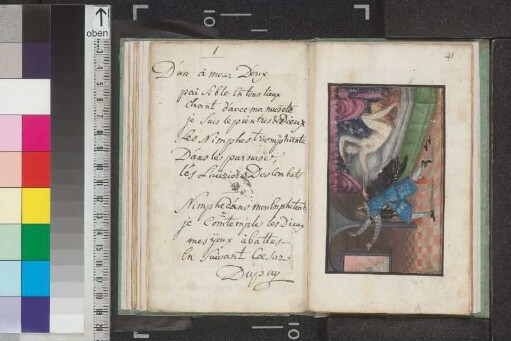 oben
1
D'un à mour Doux
pai Sible En tous lieux
Chant d'avec ma musette
je Suis le peintre de Dieux
Les Nimphes triomphante
Dans les parnasse
les Lauriers Des Combats
Nimphe dans mon
je Comtemple les Dieux
mes yeux à battus
En Suivant
Dupuy
41